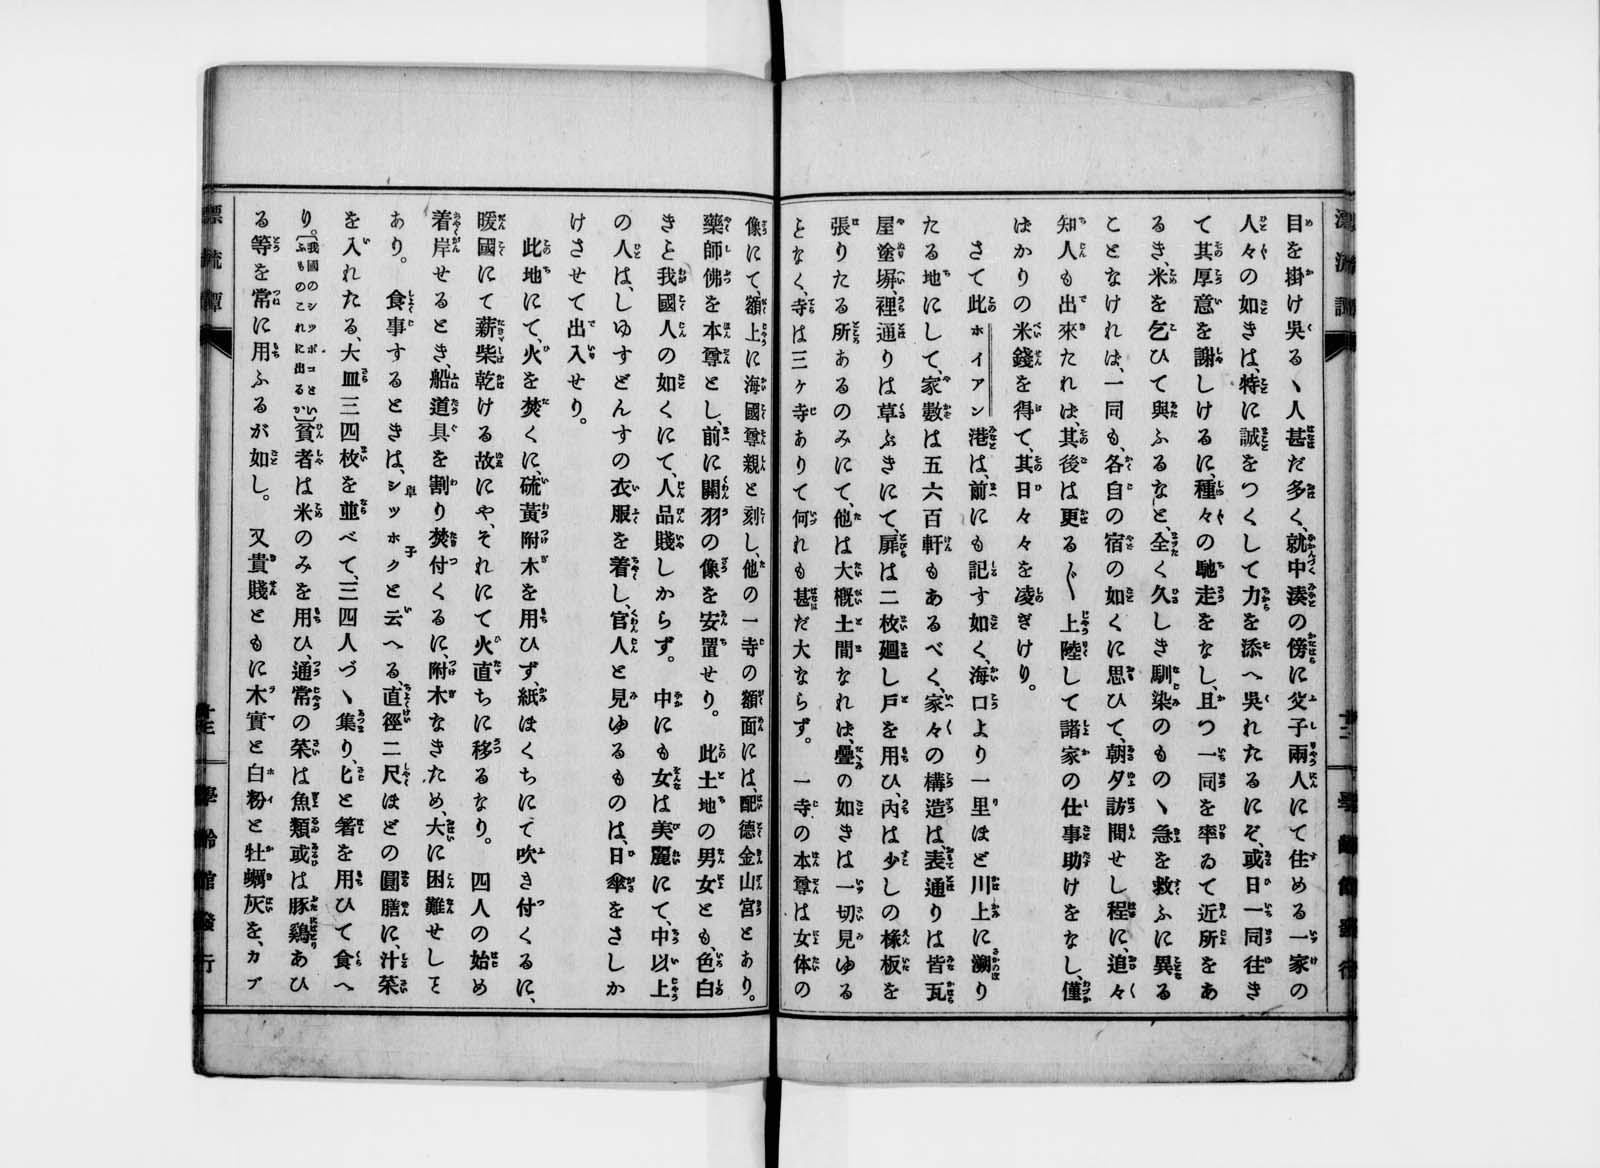 目を掛け吳る、人甚だ多く、就中湊の傍に父子兩人にて住める一家の
人々の如きは、特に誠をつくして力を添へ吳れたるにぞ、或日一同往き
て其厚意を謝しけるに、種々の馳走をなし、且つ一同を率ゐて近所をあ
るき、米を乞ひて與ふるなど、全く久しき馴染のもの、急を救ふに異る
ことなければ、一同も、各自の宿の如くに思ひて、朝夕訪問せし程に、追々
知人も出來たれば、其後は更る〲上陸して諸家の仕事助けをなし、僅
ばかりの米錢を得て、其日々々を凌ぎけり。
さて此ホイアン港は、前にも記す如く、海口より一里ほど川上に溯り
たる地にして、家數は五六百軒もあるべく、家々の構造は、表通りは皆瓦
屋塗塀、裡通りは草ぶきにて、扉は二枚廻し戸を用ひ、內は少しの椽板を
張りたる所あるのみにて、他は大槪土間なれば、疊の如きは一切見ゆる
ことなく、寺は三ヶ寺ありて何れも甚だ大ならず。一寺の本尊は女体の
像にて、額上に海國尊親と刻し、他の一寺の額面には、配德金山宮とあり。
藥師佛を本尊とし、前に關羽の像を安置せり。此土地の男女とも、色白
きこと我國人の如くにて、人品賤しからず。中にも女は美麗にて、中以上
の人は、しゆすどんすの衣服を着し、官人と見ゆるものは、日傘をさしか
けさせて出入せり。
此地にて、火を焚くに、硫黃附木を用ひず、紙ほくちにて吹き付くるに、
暖國にて薪柴乾ける故にや、それにて火直ちに移るなり。四人の始め
着岸せるとき、船道具を割り焚付くるに、附木なきため、大に困難せしこと
あり。食事するときは、シッホクと云へる、直徑二尺ほどの圓膳に、汁菜
を入れたる、大皿三四枚を並べて、三四人づ、集り、匕と箸を用ひて食へ
り。〔我國のシッポコといふものこれに出るか〕貧者は米のみを用ひ、通常の菜は魚類或は豚鷄あひ
る等を常に用ふるが如し。又貴賤ともに木實と白粉と牡蠣灰を、カブ
漂流譚
學齡館發行